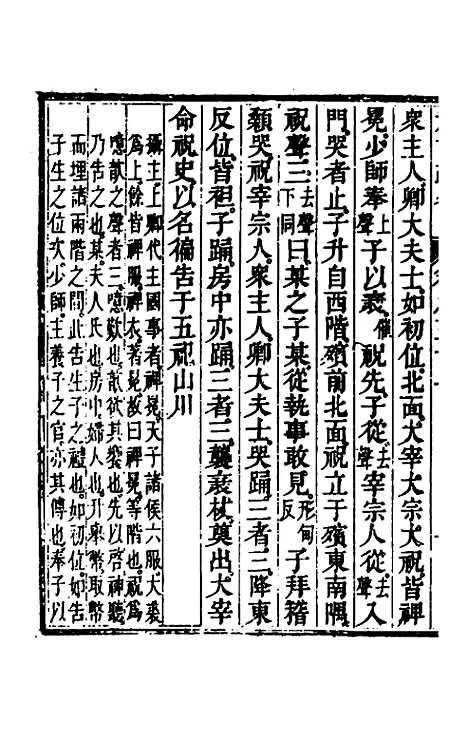 衆主人卿大夫士如初位北面大宰大宗大祝皆裨
冕少師奉上聲子以衰催祝先子從去聲宰宗人從去聲入
門哭者止子升自西階殯前北面祝立于殯東南隅
祝聲三去聲下同曰某之子某從執事敢見形甸反子拜稽
顙哭祝宰宗人衆主人卿大夫士哭踊三者三降東
反位皆袒子踊房中亦踊三者三襲衰杖奠出大宰
命祝史以名徧告于五祀山川
攝主上卿代主國事者裨冕天子諸侯六服大裘
爲上餘皆裨服裨衣著冕故曰裨冕等階也祝爲
噫歆之聲者三噫歎也歆欲其饗也先以啓神聽
乃告之也某夫人氏也房中婦人也升舉幣取幣
而埋諸兩階之間此告生子之禮也如初位如告
子生之位次少師主養子之官亦其傅也奉子以